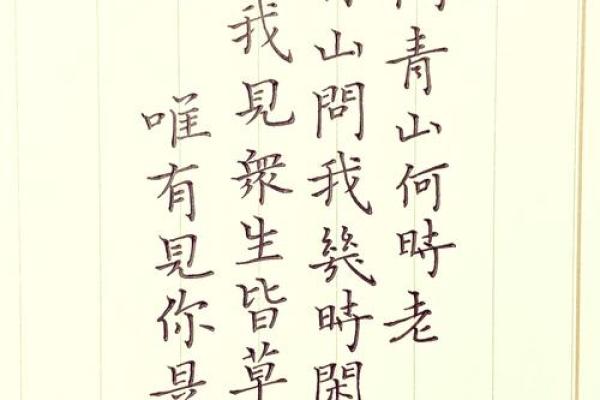 青山何時老
山問我幾時閑
我見衆生皆草
唯有見你